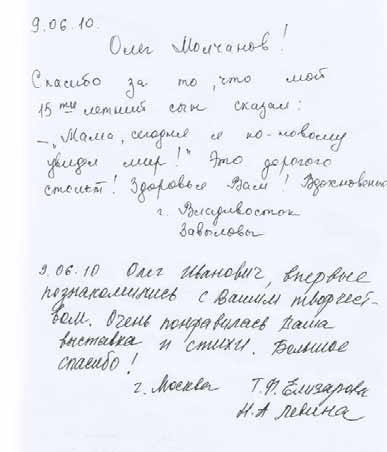 9.06.10.
Олег Молчанов!
Спасибо за то, что мой
15ти летний сын сказал:
– „Мама, сегодня я по-новому
увидел мир!" Это дорогого
стоит! Здоровья Вам! Вдохновенья
г. Владивосток
Завыловы
9.06.10 Олег Иванович, впервые
познакомились с Вашим творчест-
вом. Очень понравилась Ваша
выставка и стихи. Большое
спасибо!
г. Москва Т.Ф. Елизарова
Н.А Левина